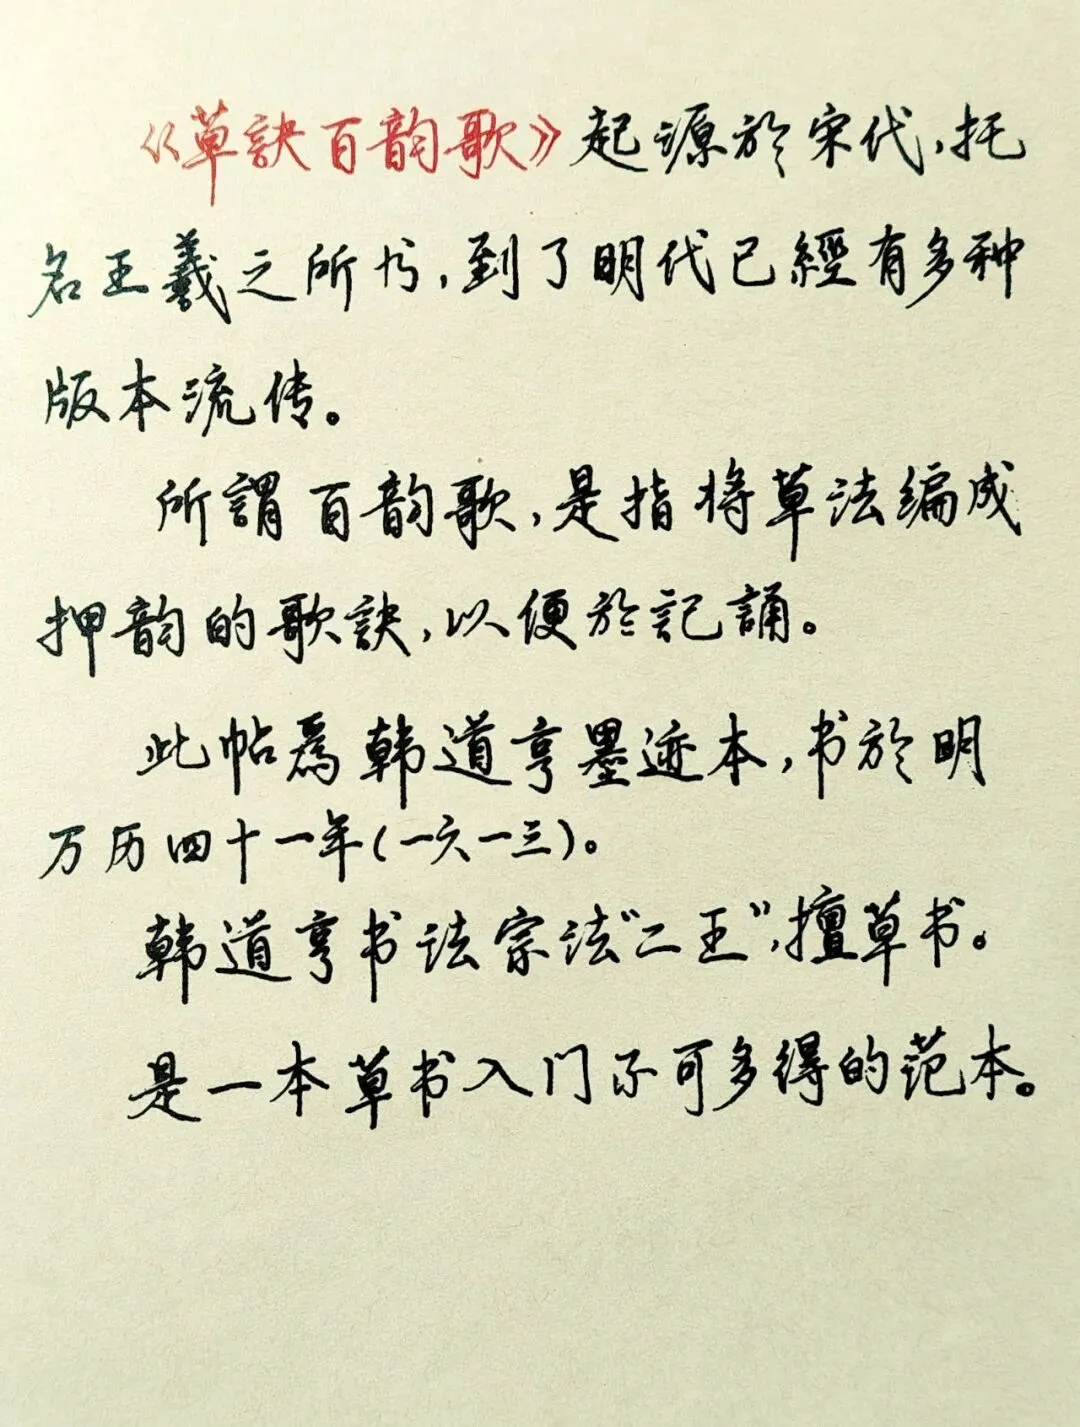 《草訣百韵歌》起源於宋代,托
名王羲之所书,到了明代已經有多种
版本流传。
所謂百韵歌,是指将草法编成
押韵的歌訣,以便於記誦。
此帖爲韩道亨墨迹本,书於明
万历四十一年(一六一三)。
韩道亨书法宗法“二王”,擅草书。
是一本草书入门不可多得的范本。